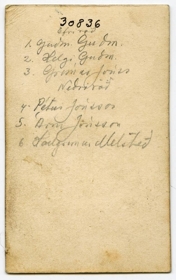 30836
Efri röð
1. Guðm. Guðm.
2. Helgi Guðm.
3 Grímur Jóns
Neðri röð
4. Pétur Jónsson
5. Jónsson
6 Melsteð